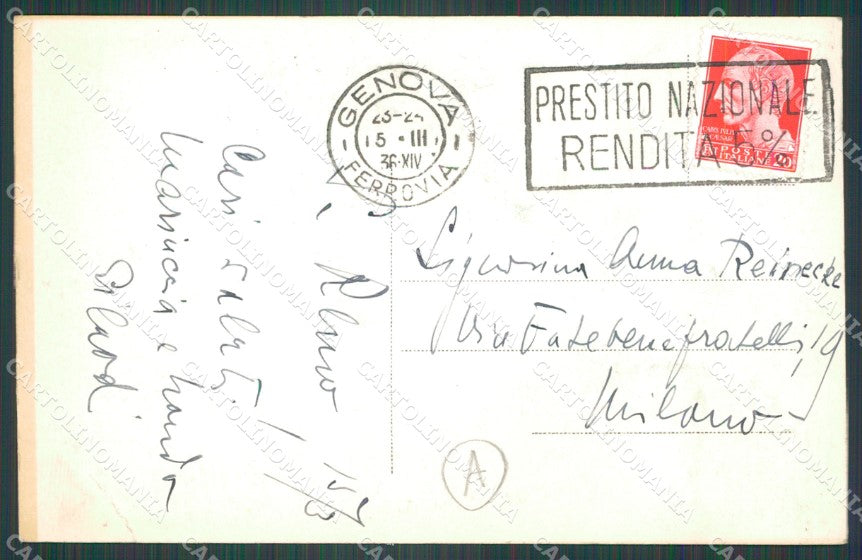 GENOVA
23-24
5 · III
36·XIV
FERROVIA
PRESTITO NAZIONALE
RENDITA 5%
POSTE
ITALIANE
Signorina Anna Reinecke
Via Fatebenefratelli, 19
Milano
A
Remo
Cari saluti
Mariuccia e
CARTOLINOMANIA